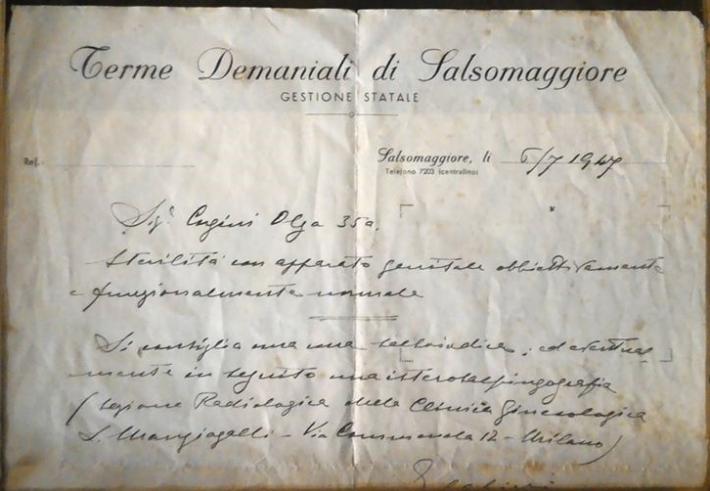 Terme Demaniali di Salsomaggiore
GESTIONE STATALE
Ref.
Salsomaggiore, li 6/7 1947
Telefono 7203 (centralino)
Sig.ª Cugini Olga 35a.
Sterilità con apparato genitale obbiettivamente
e funzionalmente normale
Si consiglia una cura salsoiodica; ed eventual
mente in seguito una isterosalpingografia
(sezione Radiologica della Clinica Ginecologica
L. Mangiagalli - Via Commenda 12 - Milano)